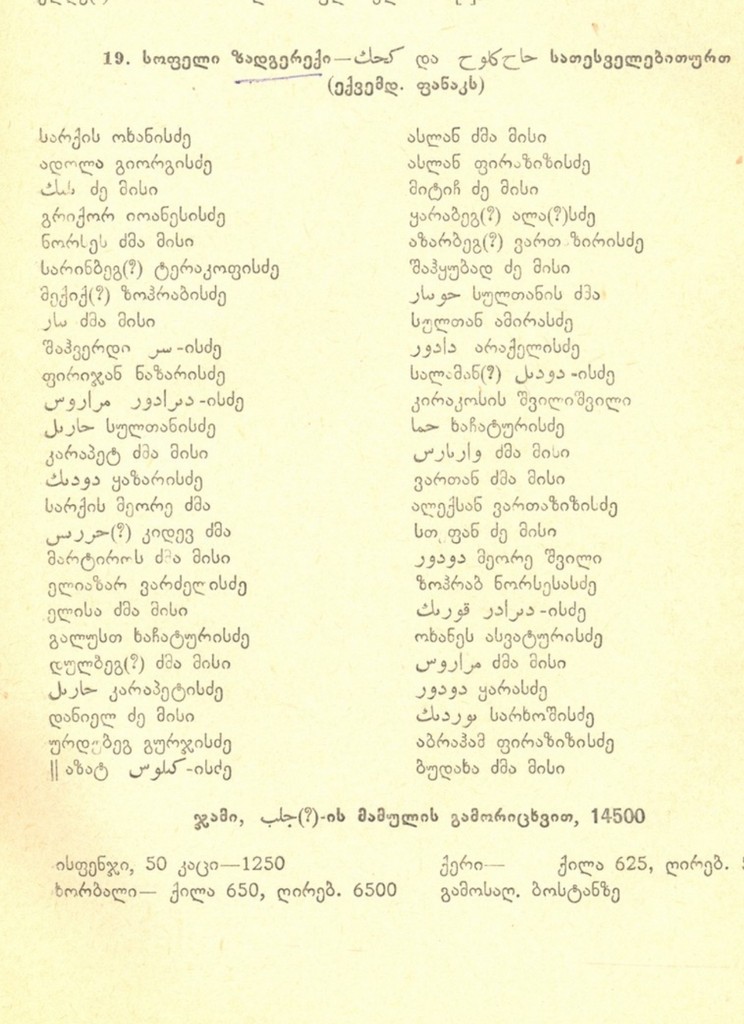 19. სოფელი ზადგერექი—كىحك და حاح كاوح სათესველებითურთ
(ექვემდ. ფანაკს)
სარქის ოხანისძე
ადოლა გიორგისძე
ძე მისი
გრიქორ იოანესისძე
ნორსეს ძმა მისი
სარინბეგ(?) ტერაკოფისძე
მექიქ(?) ზოჰრაბისძე
ძმა მისი
შაჰვერდი سر-ისძე
ფირიჯან ნაზარისძე
دىرادور مراروس-ისძე
حارىل სულთანისძე
კარაპეტ ძმა მისი
دودىك ყაზარისძე
სარქის მეორე ძმა
حررىس(?) კიდევ ძმა
მარტიროს ძმა მისი
ელიაზარ ვარძელისძე
ელისა ძმა მისი
გალუსთ ხაჩატურისძე
დულბეგ(?) ძმა მისი
حارىل კარაპეტისძე
დანიელ ძე მისი
ურდუბეგ გურჯისძე
|| აზატ كىلوس-ისძე
ასლან ძმა მისი
ასლან ფირაზიზისძე
მიტიჩ ძე მისი
ყარაბეგ(?) ალა(?)სძე
აზარბეგ(?) ვართ ზირისძე
შაჰყუბად ძე მისი
حوسار სულთანის ძმა
სულთან ამირასძე
دادور არაქელისძე
სალამან(?) دودىل-ისძე
კირაკოსის შვილიშვილი
حما ხაჩატურისძე
وارىارس ძმა მისი
ვართან ძმა მისი
ალექსან ვართაზიზისძე
სთეფან ძე მისი
دودور მეორე შვილი
ზოჰრაბ ნორსესასძე
دىرادر قورىك-ისძე
ოხანეს ასვატურისძე
مراروس ძმა მისი
دودور ყარასძე
ىوردىك სარხოშისძე
აბრაჰამ ფირაზიზისძე
ბუდახა ძმა მისი
ჯამი, جلب(?)-ის მამულის გამორიცხვით, 14500
ისფენჯი, 50 კაცი—1250
ხორბალი— ქილა 650, ღირებ. 6500
ქერი— ქილა 625, ღირებ.
გამოსაღ. ბოსტანზე